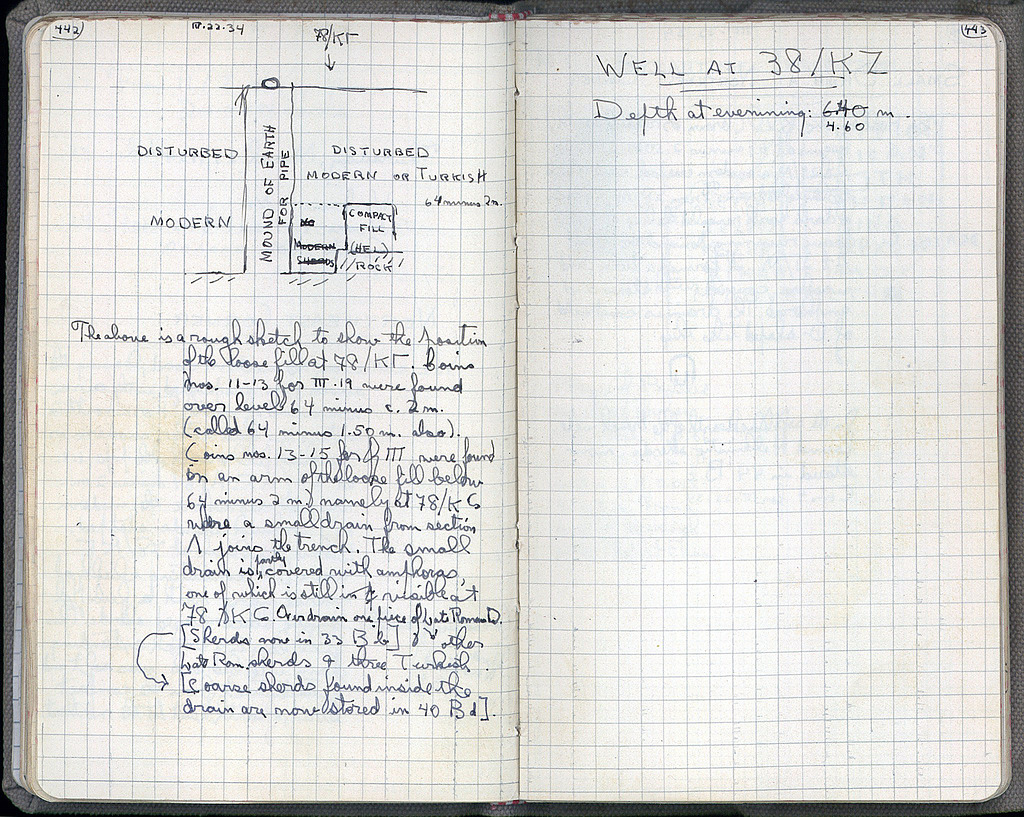 442
IV.22.34
78/ΚΓ
DISTURBED
MODERN
MOUND OF EARTH
FOR PIPE
DISTURBED
MODERN OR TURKISH
64 minus 2m.
NO
MODERN
SHERDS
COMPACT
FILL
(HEL)
ROCK
The above is a rough sketch to show the position
of the loose fill at 78/ΚΓ. Coins
nos. 11-13 for III.19 were found
over level 64 minus c. 2 m.
(called 64 minus 1.50 m. also).
Coins nos. 13-15 for III were found
in an arm of the loose fill below
64 minus 2 m., namely at 78/Κς
where a small drain from section
Λ joins the trench. The small
drain is partly covered with amphoras,
one of which is still in visible at
78/Κς. Over drain one piece of Late Roman L.
[Sherds now in 33 B b] & other
Late Rom. sherds & three Turkish.
[Coarse sherds found inside the
drain are now stored in 40 B d].
443
WELL AT 38/ΚΖ
Depth at evenining: 6.40 m.
4.60